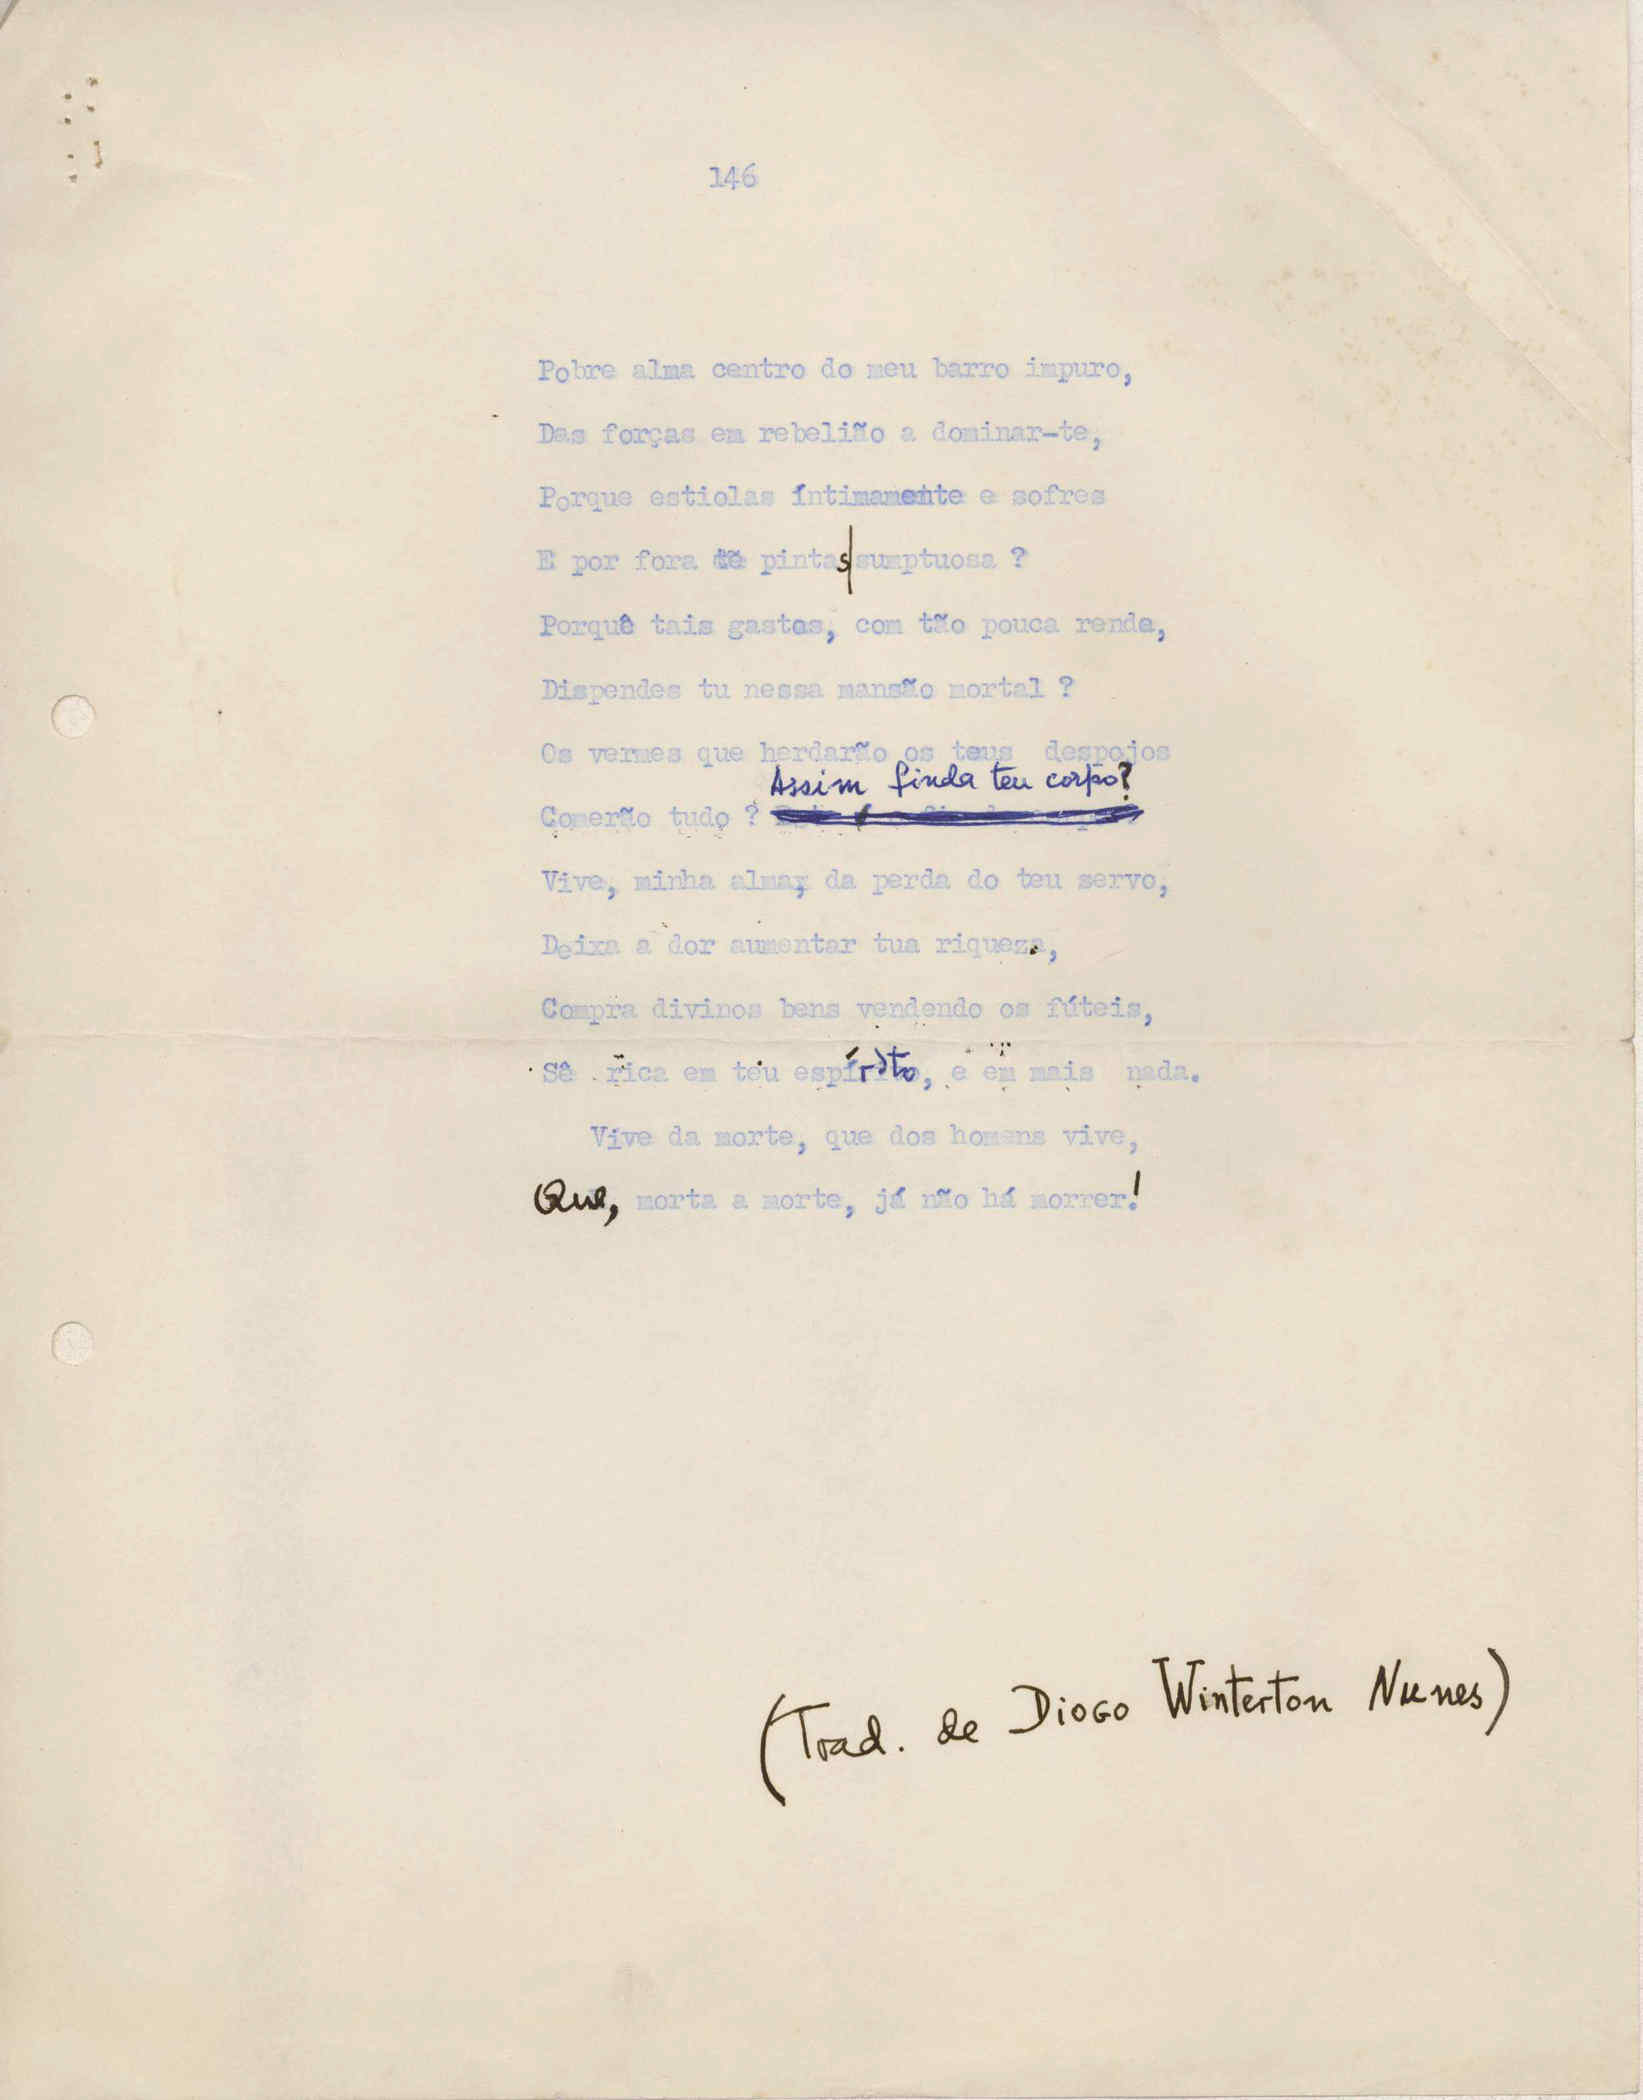 146
Pobre alma centro do meu barro impuro,
Das forças em rebelião a dominar-te,
Porque estiolas íntimamente e sofres
E por fora te pintas sumptuosa ?
Porquê tais gastos, com tão pouca renda,
Dispendes tu nessa mansão mortal ?
Os vermes que herdarão os teus despojos
Assim finda teu corpo?
Comerão tudo ?
Vive, minha alma, da perda do teu servo,
Deixa a dor aumentar tua riqueza,
Compra divinos bens vendendo os fúteis,
Sê rica em teu espírito, e em mais nada.
Vive da morte, que dos homens vive,
Que, morta a morte, já não há morrer!
(Trad. de Diogo Winterton Nunes)